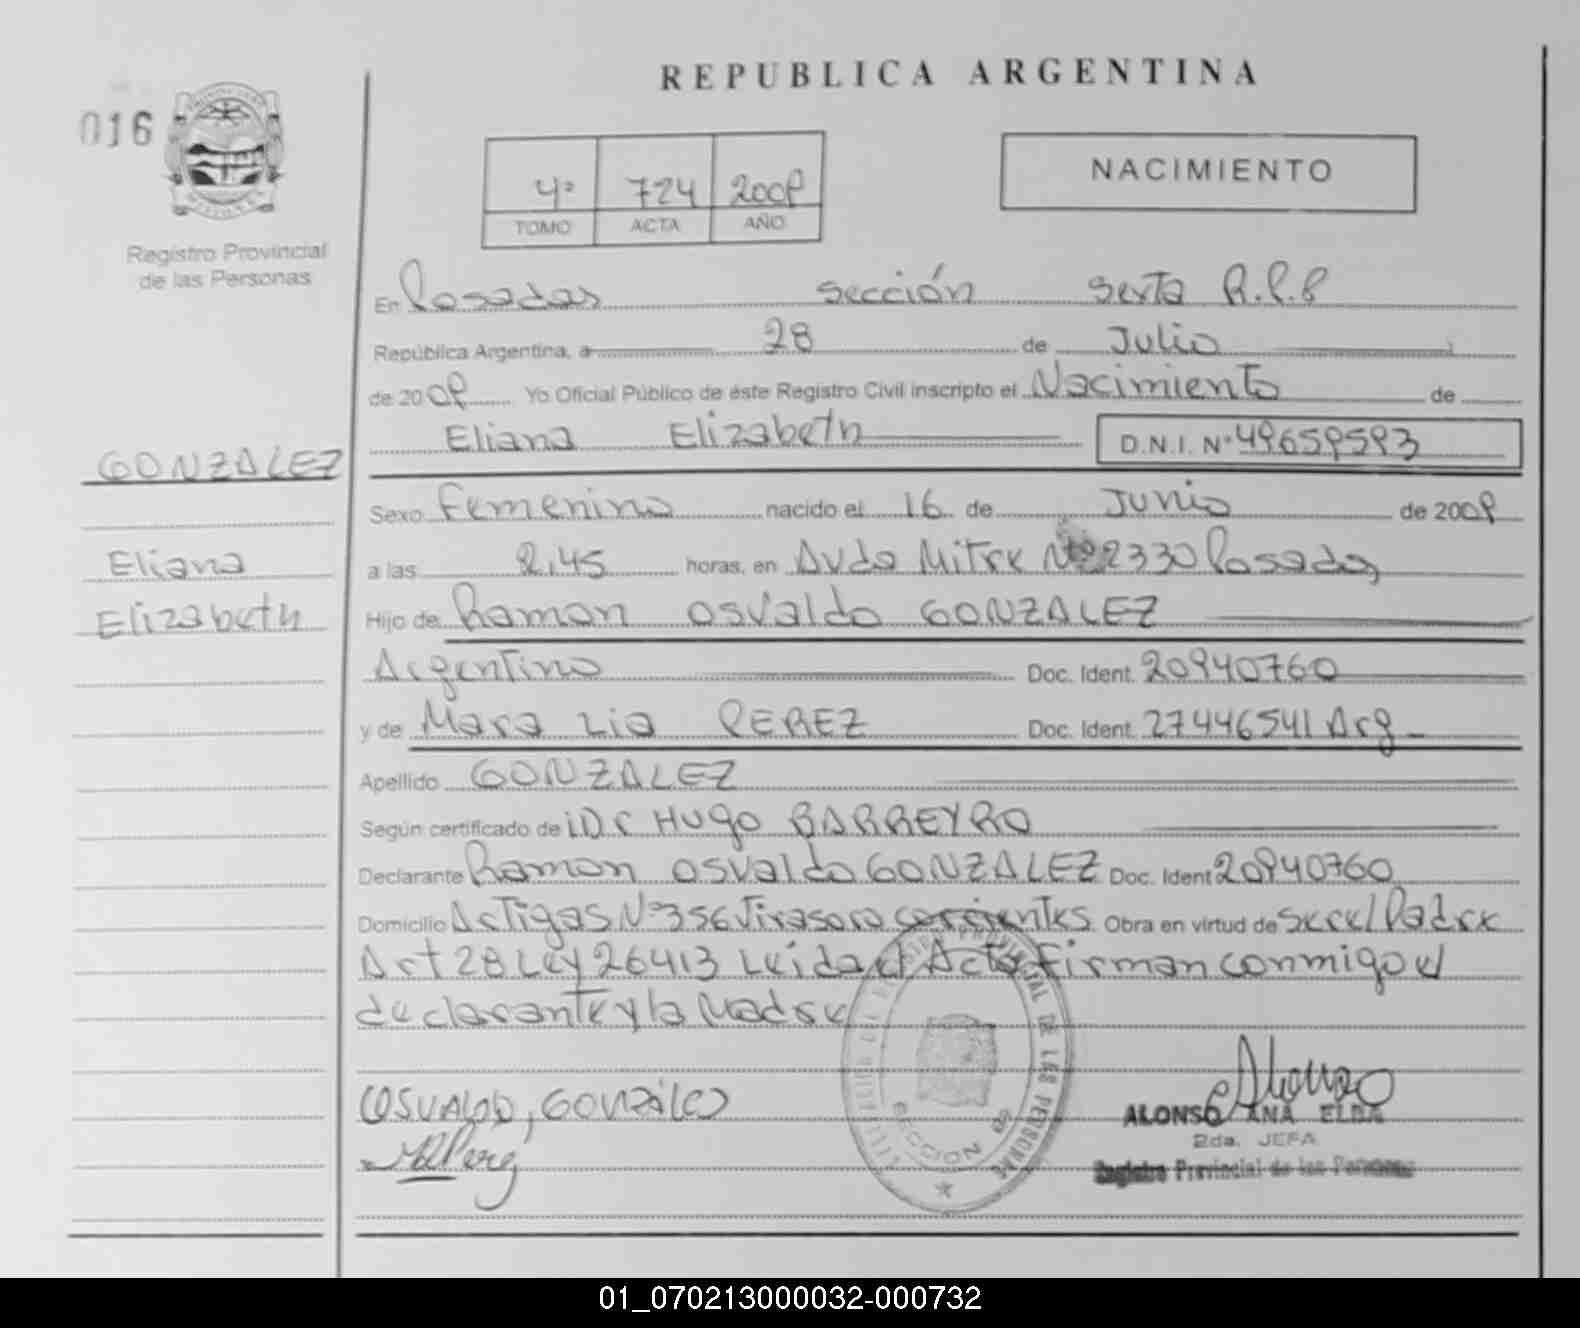 REPUBLICA ARGENTINA
016
4º 724 2009
TOMO ACTA AÑO
NACIMIENTO
Registro Provincial
de las Personas
En Posadas sección sexta R.P.P
República Argentina, a 28 de Julio
de 2009 Yo Oficial Público de éste Registro Civil inscripto el Nacimiento de
Eliana Elizabeth D.N.I. Nº 49659593
GONZALEZ
Eliana
Elizabeth
Sexo Femenino nacido el 16 de Junio de 2009
a las 2,45 horas, en Avda Mitre Nº 2330 Posadas
Hijo de Ramon Osvaldo GONZALEZ
Argentino Doc. Ident. 20940760
y de Mara Lia PEREZ Doc. Ident. 27446541 Arg
Apellido GONZALEZ
Según certificado de Dr HUgo BARREYRO
Declarante Ramon Osvaldo GONZALEZ Doc. Ident 20940760
Domicilio Artigas Nº 356 Virasoro corrientes. Obra en virtud de ser el Padre
Art 28 Ley 26413 Leida el Acta Firman conmigo el
declarante y la Madre
OSVALDO, GONZÁLEZ
Perez
REGISTRO PROVINCIAL DE LAS PERSONAS
SECCION 6º
ALONSO ANA ELBA
2da. JEFA
Registro Provincial de las Personas
01_070213000032-000732